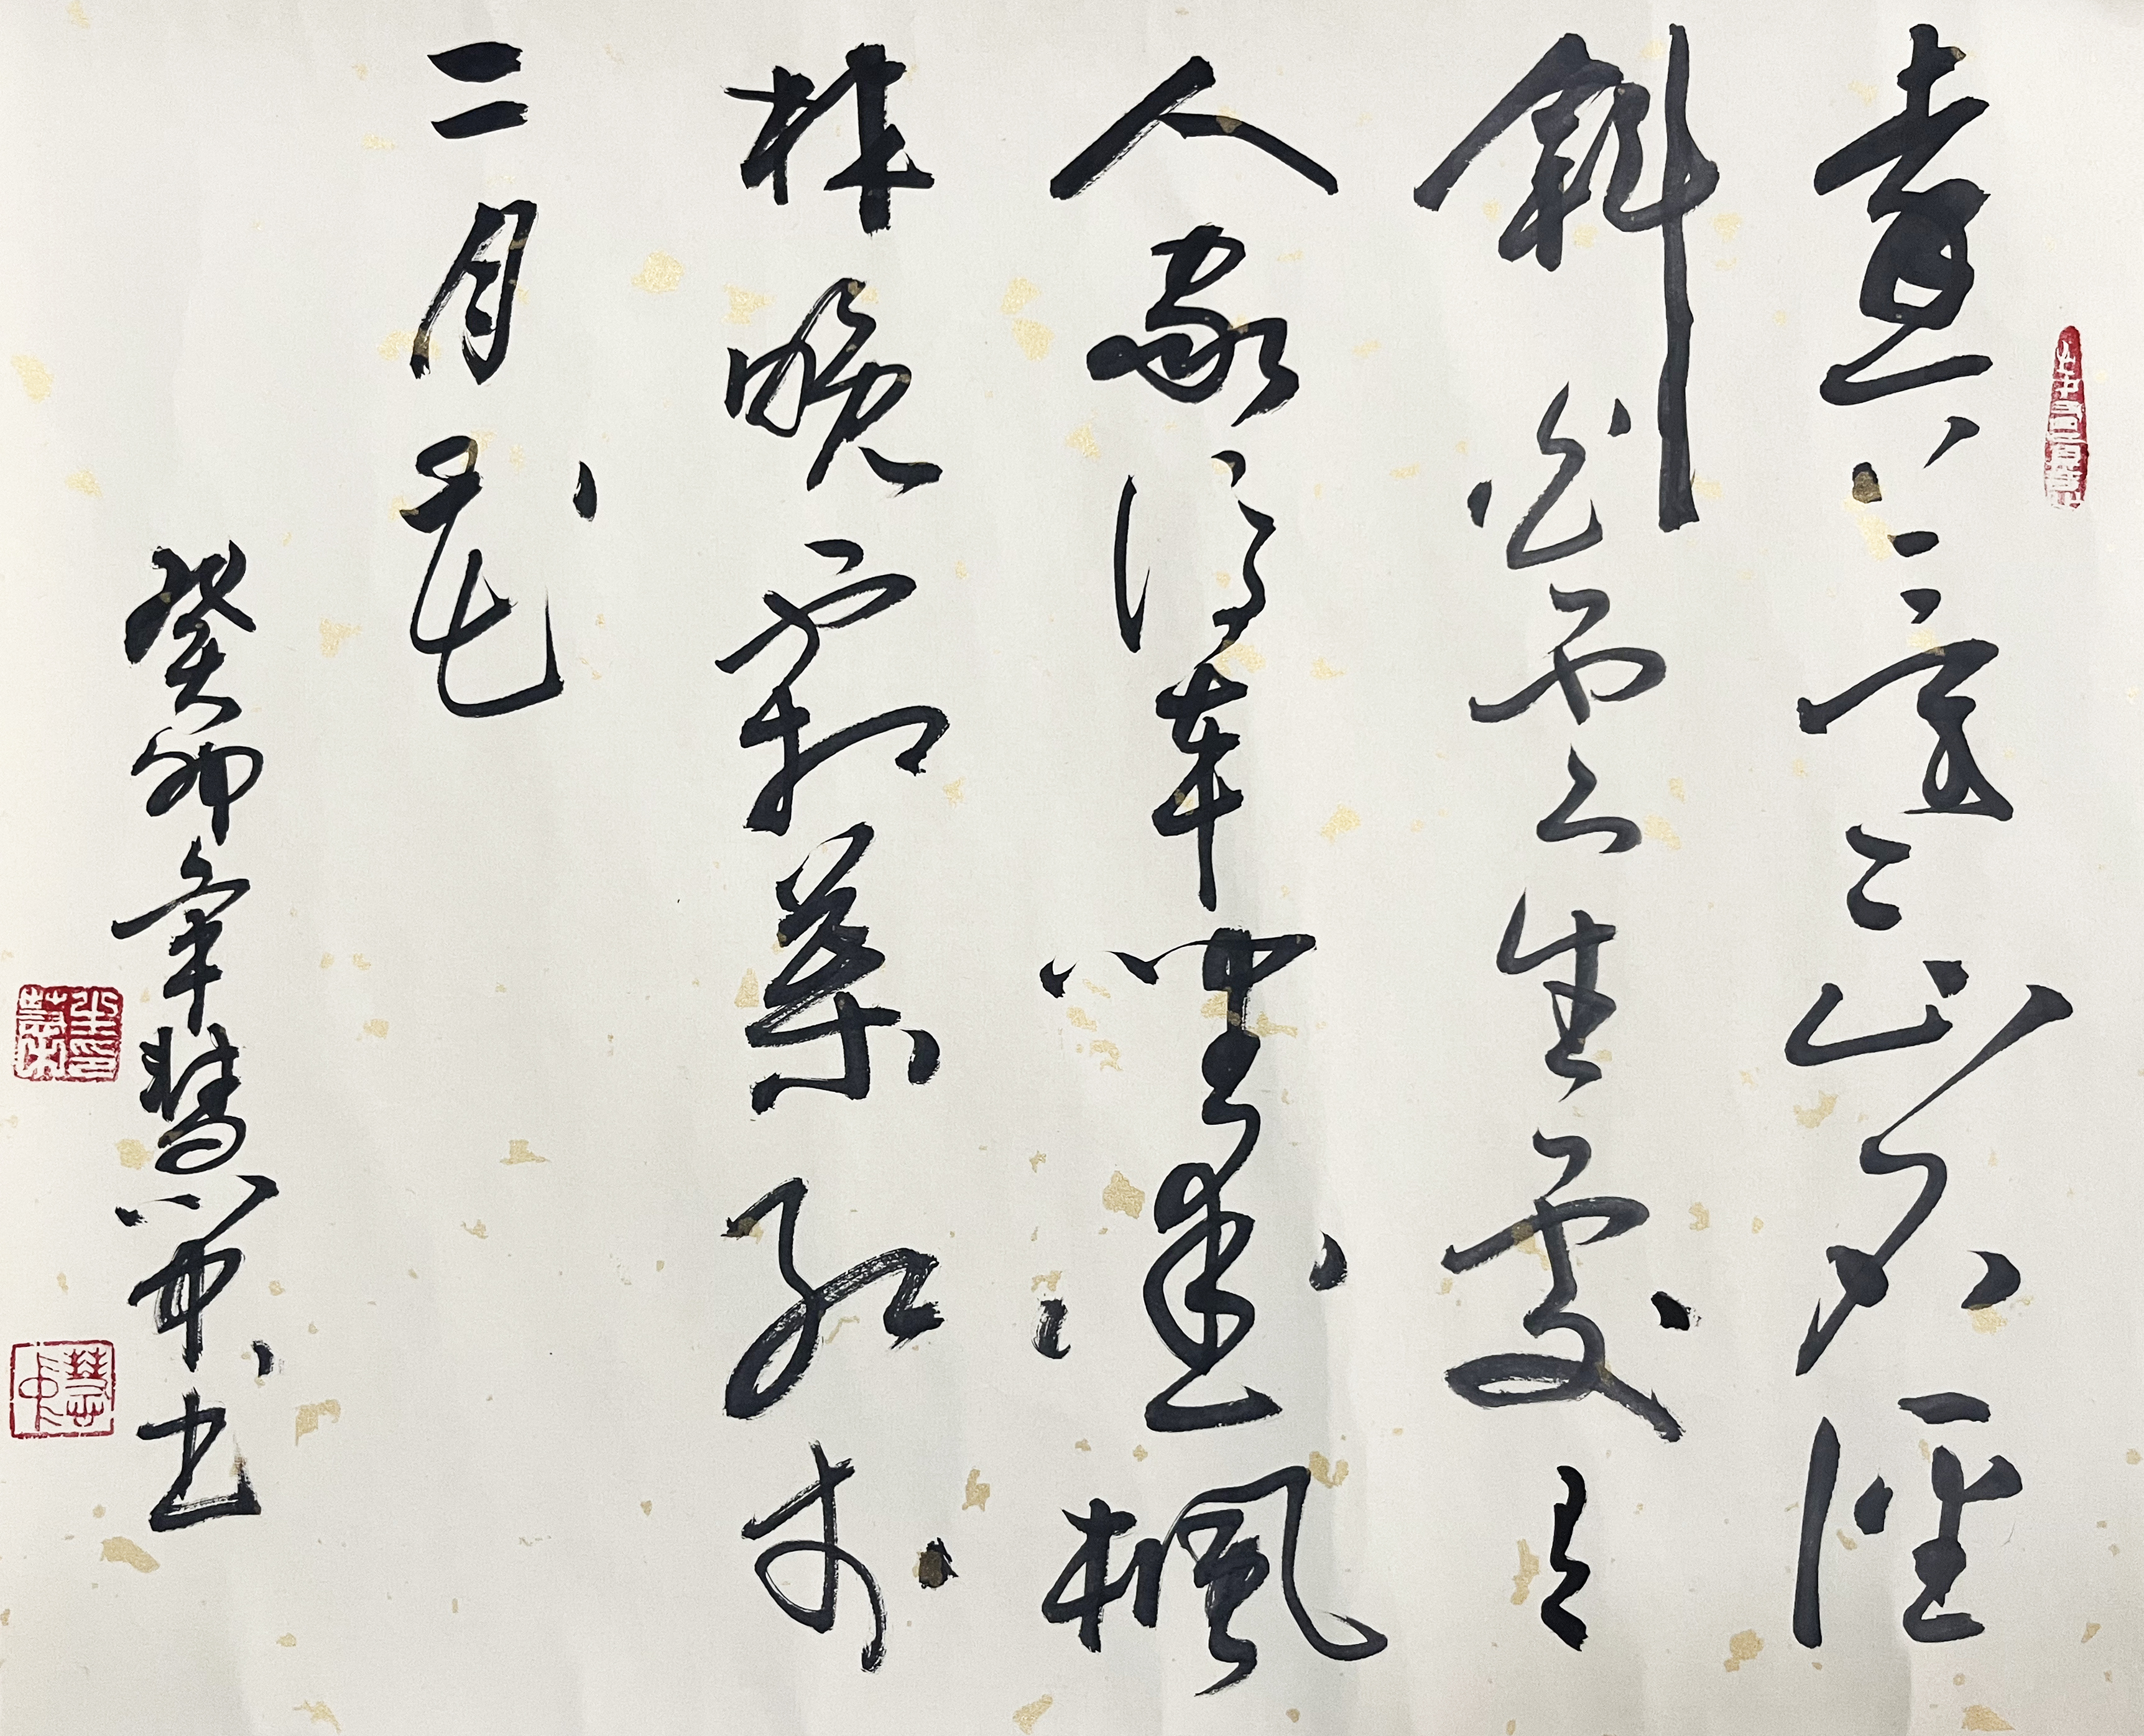 遠上寒山石徑
斜白雲生處有
人家停車坐愛楓
林晚霜葉紅於
二月花
癸卯年慧中书